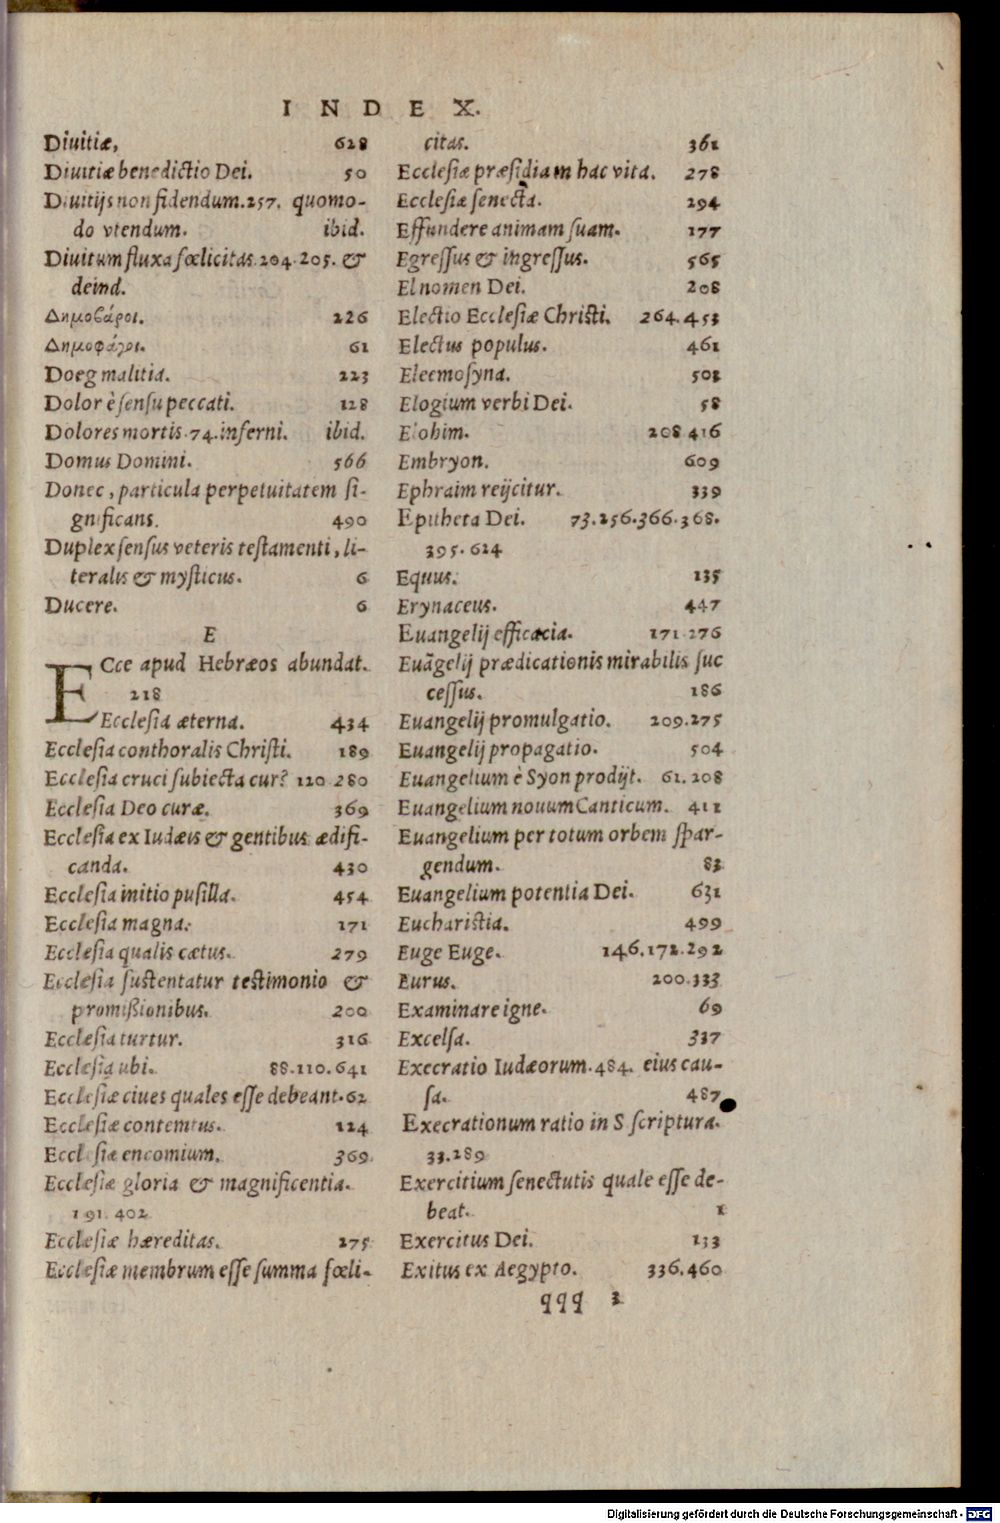 INDEX.
Diuitiæ, 628
Diuitiæ benedictio Dei. 50
Diuitijs non fidendum. 257. quomo-
do vtendum. ibid.
Diuitum fluxa fœlicitas. 204. 205. &
deind.
Δημοϐάροι. 226
Δημοφάγοι. 61
Doeg malitia. 223
Dolor è sensu peccati. 128
Dolores mortis. 74. inferni. ibid.
Domus Domini. 566
Donec, particula perpetuitatem si-
gnificans. 490
Duplex sensus veteris testamenti, li-
teralis & mysticus. 6
Ducere. 6
E
ECce apud Hebræos abundat.
218
Ecclesia æterna. 434
Ecclesia conthoralis Christi. 189
Ecclesia cruci subiecta cur? 120 280
Ecclesia Deo curæ. 369
Ecclesia ex Iudæis & gentibus ædifi-
canda. 430
Ecclesia initio pusilla. 454
Ecclesia magna. 171
Ecclesia qualis cœtus. 279
Ecclesia sustentatur testimonio &
promißionibus. 200
Ecclesia turtur. 316
Ecclesia ubi. 88. 110. 641
Ecclesiæ ciues quales esse debeant. 62
Ecclesiæ contemtus. 124
Ecclesiæ encomium. 369
Ecclesiæ gloria & magnificentia.
191. 402
Ecclesiæ hæreditas. 275
Ecclesiæ membrum esse summa fœli-
citas. 361
Ecclesiæ præsidia in hac vita. 278
Ecclesiæ senecta. 294
Effundere animam suam. 177
Egressus & ingressus. 565
El nomen Dei. 208
Electio Ecclesiæ Christi. 264. 453
Electus populus. 461
Eleemosyna. 501
Elogium verbi Dei. 58
Elohim. 208 416
Embryon. 609
Ephraim reijcitur. 339
Epitheta Dei. 73. 256. 366. 368.
395. 624
Equus. 135
Erynaceus. 447
Euangelij efficacia. 171. 276
Euãgelij prædicationis mirabilis suc
cessus. 186
Euangelij promulgatio. 209. 275
Euangelij propagatio. 504
Euangelium è Syon prodijt. 61. 208
Euangelium nouum Canticum. 411
Euangelium per totum orbem spar-
gendum. 83
Euangelium potentia Dei. 631
Eucharistia. 499
Euge Euge. 146. 172. 292
Eurus. 200. 333
Examinare igne. 69
Excelsa. 337
Execratio Iudæorum. 484. eius cau-
sa. 487
Execrationum ratio in S scriptura.
33. 289
Exercitium senectutis quale esse de-
beat. 1
Exercitus Dei. 133
Exitus ex Aegypto. 336. 460
qqq 3
Digitalisierung gefördert durch die Deutsche Forschungsgemeinschaft - DFG